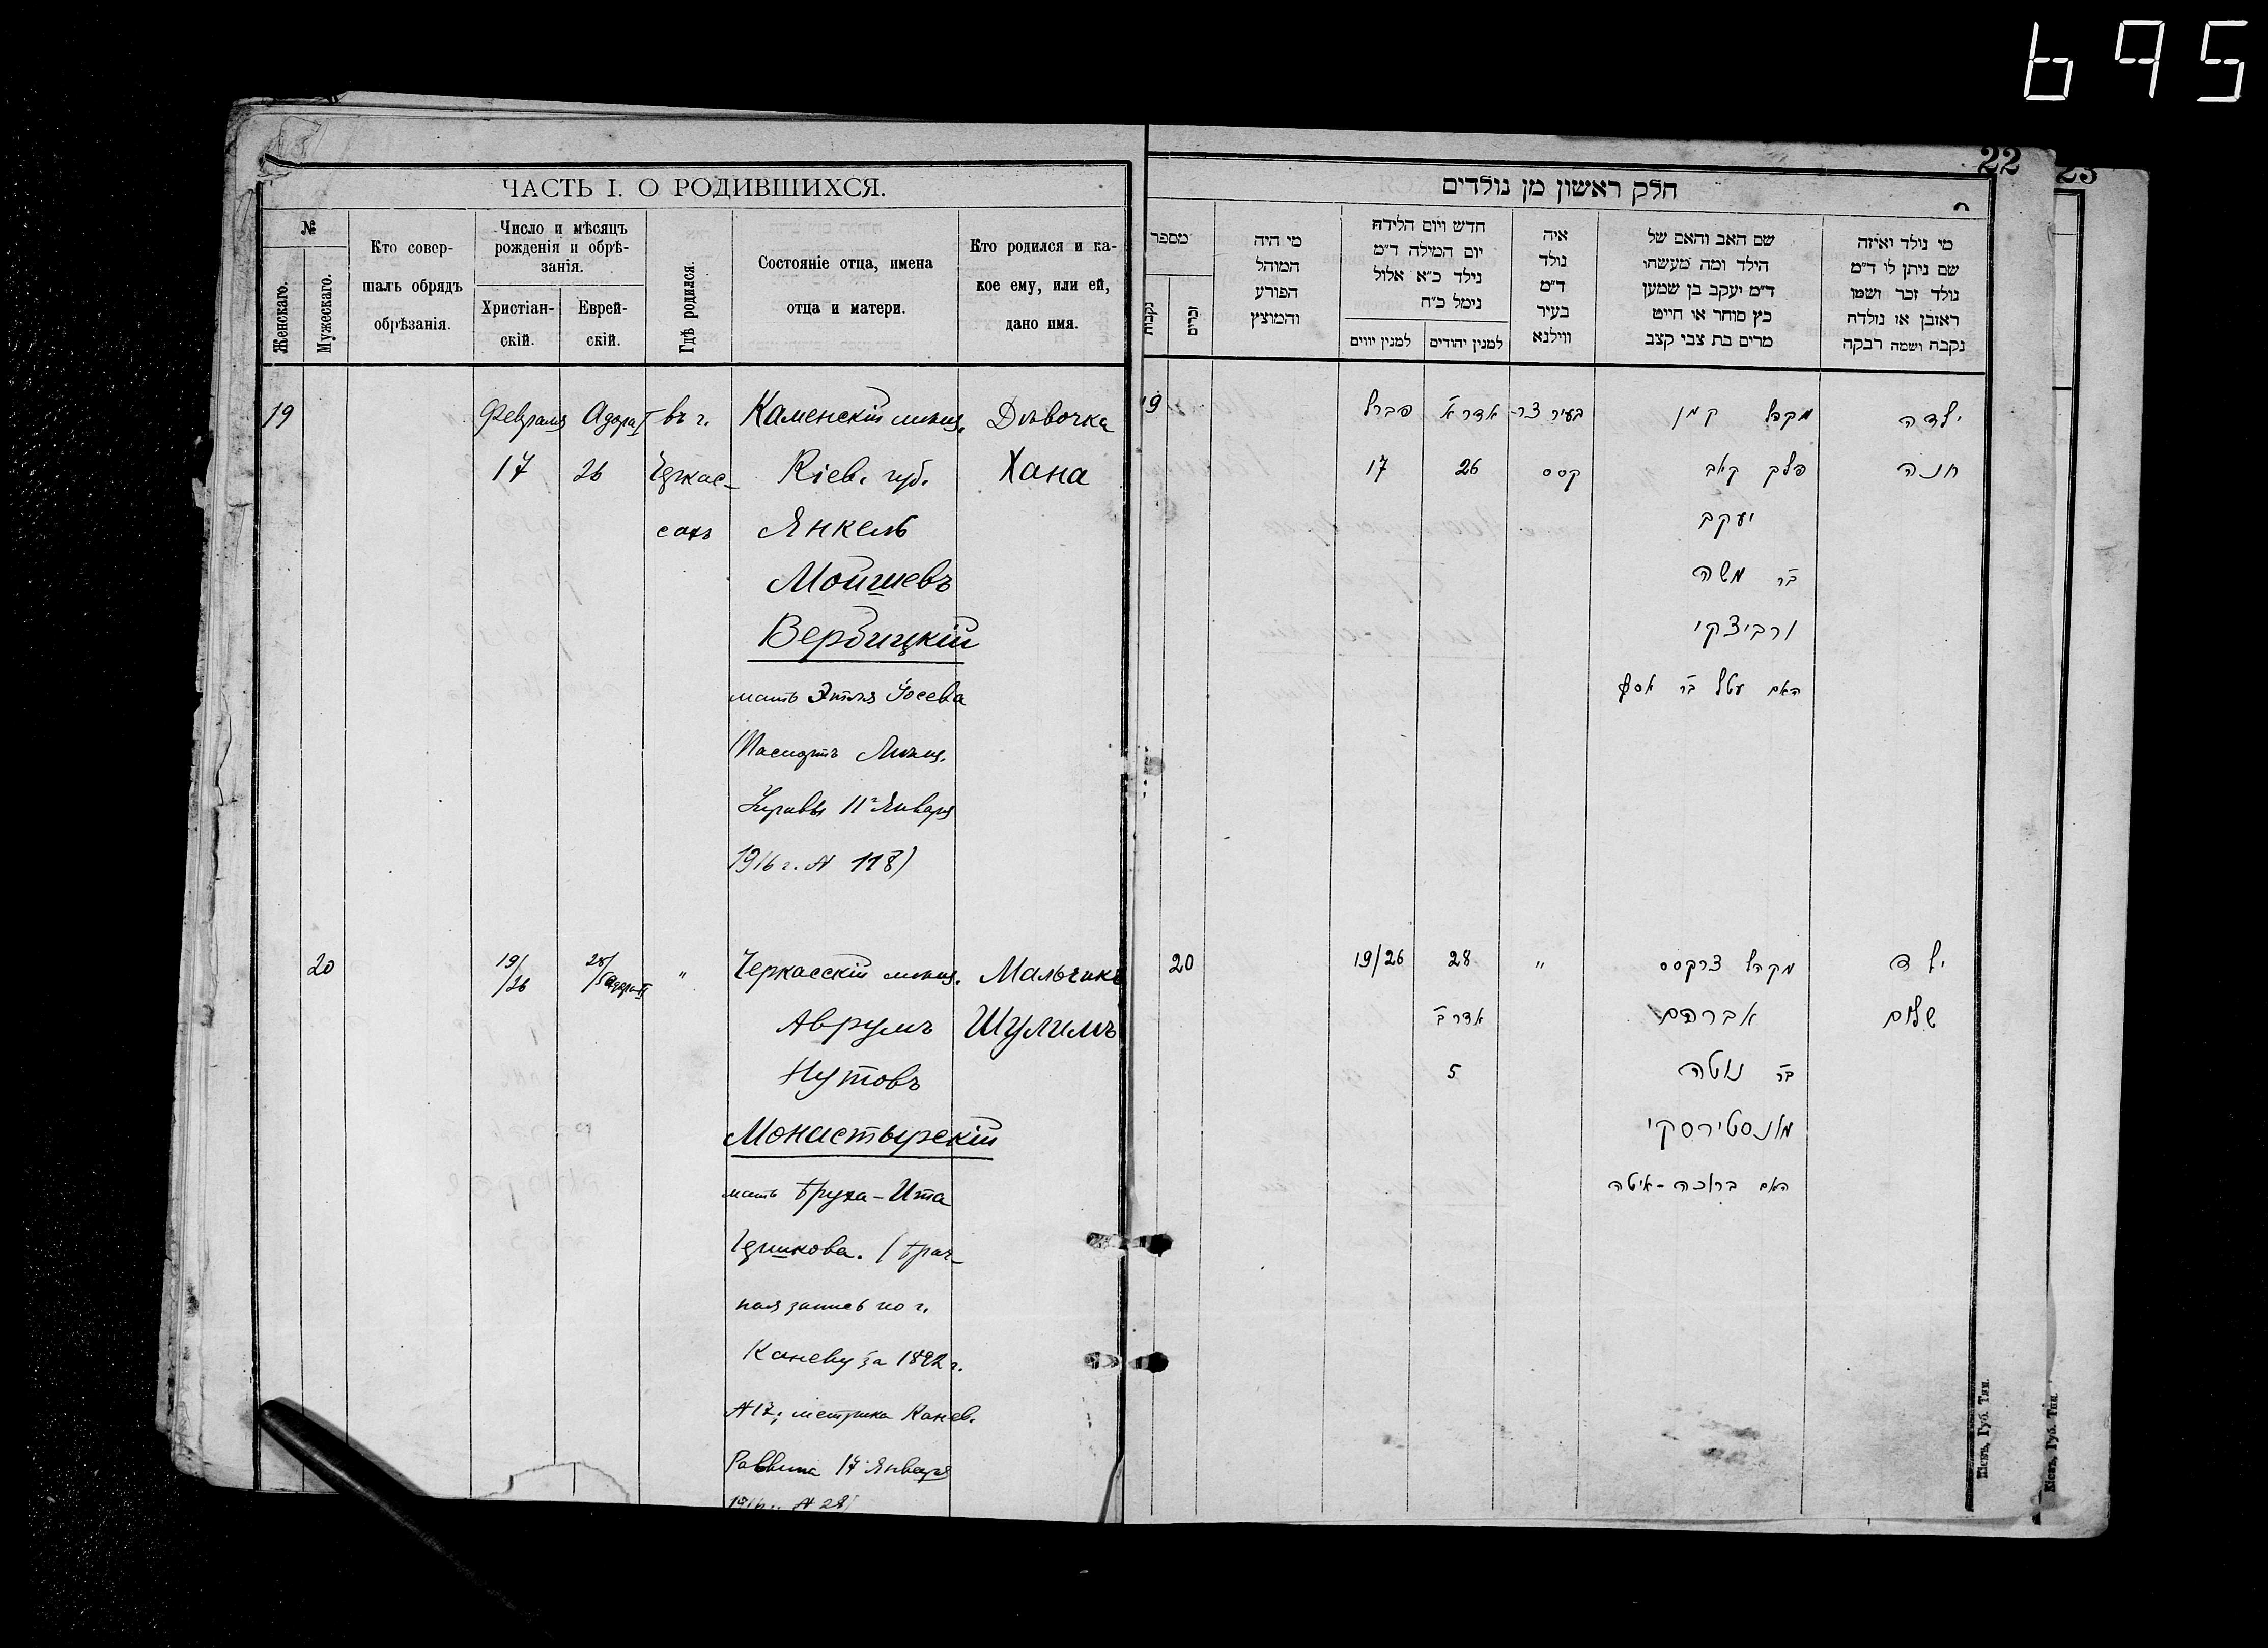 695
22
23
ЧАСТЬ I. О РОДИВШИХСЯ.
№
Женскаго.
Мужескаго.
Кто совер-
шалъ обрядъ
обрѣзанія.
Число и мѣсяцъ
рожденія и обрѣ-
занія.
Христіан-
скій.
Еврей-
скій.
Гдѣ родился.
Состояніе отца, имена
отца и матери.
Кто родился и ка-
кое ему, или ей,
дано имя.
19
Февраля
17
Адара I
26
въ г.
Черкас-
сахъ
Каменскій мѣщ.
Кіев. губ.
Янкель
Мойшевъ
Вербицкій
мать Этля Іосева
(Паспортъ Мѣщ.
Управы 11 Января
1916 г. № 118)
Дѣвочка
Хана
20
19/26
28/5 Адара II
"
Черкасскій мѣщ.
Аврумъ
Нутовъ
Монастырскій
мать Бруха-Ита
Гершкова. (Брач-
ная запись по г.
Каневу за 1892 г.
№ 17; метрика Канев.
Раввина 17 Января
1916 г. № 28)
Мальчикъ
Шулимъ
חלק ראשון מן נולדים
מספר
נקבות
זכרים
מי היה
המוהל
הפורע
והמוצץ
חדש ויום הלידה
יום המילה ד״מ
נילד כ״א אלול
נימל כ״ח
למנין יווים
למנין יהודים
איה
נולד
ד״מ
בעיר
ווילנא
שם האב והאם של
הילד ומה מעשהו
ד״מ יעקב בן שמען
כץ סוחר או חייט
מרים בת צבי קצב
מי נולד ואיזה
שם ניתן לו ד״מ
נולד זכר ושמו
ראובן או נולדה
נקבה ושמה רבקה
19
פברל
17
אדר א
26
בעיר צר-
קסס
מקהל קמן
פלך קאב
יעקב
בר משה
ורביצקי
האם עטל בר יאסף
ילדה
חנה
20
19/26
28
אדר ב
5
"
מקהל צרקסס
אברהם
בר נוטה
מונסטירסקי
האם ברוכה-איטה
ילד
שלום
Кіевъ, Губ. Тип.
Кіевъ, Губ. Тип.